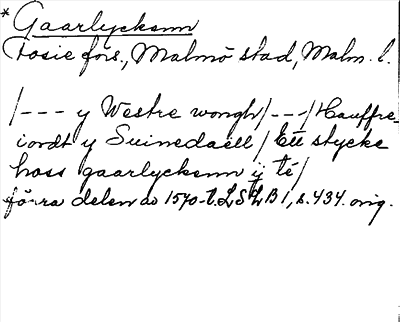 * Gaarlyckenn
Fosie förs., Malmö stad, Malm. l.
/--- y Westre wongh/---/Hauffre-
iordt y Suinedaell/Ett stycke
hoss gaarlyckenn ÿ té/
förra delen av 1570-t. LSLB 1, s. 434. orig.